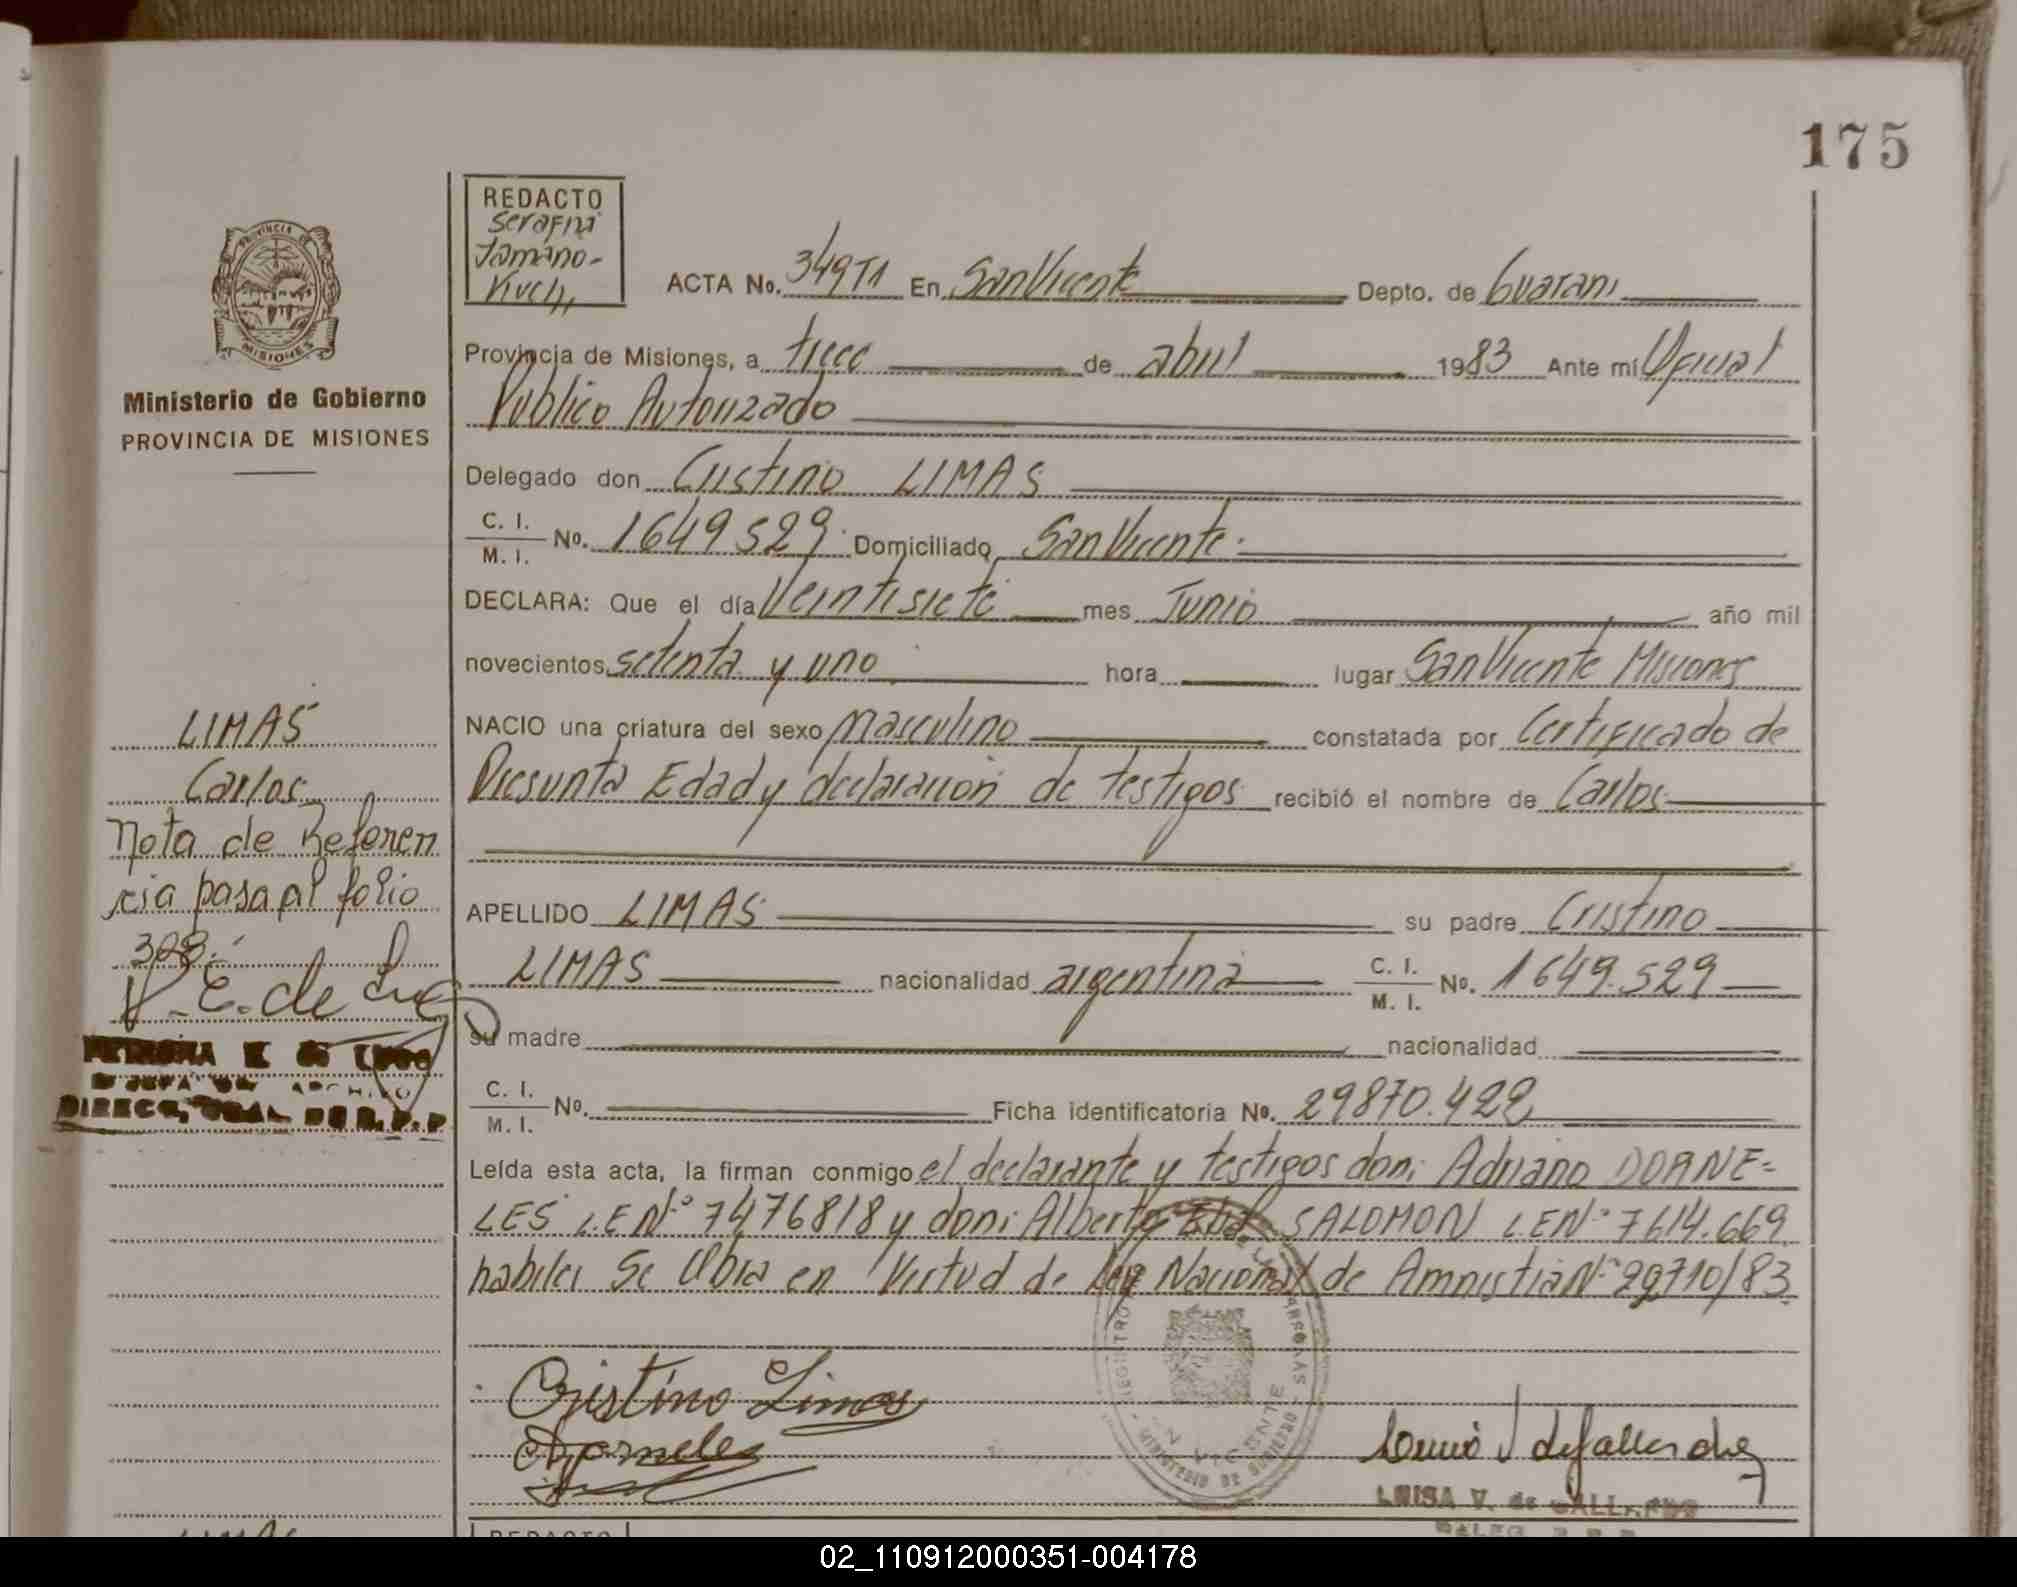 175
REDACTO
Serafina
Tamano-
Kivch,
ACTA No. 349 T1 En San Vicente Depto. de Guarani
Provincia de Misiones, a trece de abril 1983 Ante mí Oficial
Publico Autorizado
Delegado don Cristino LIMAS
C. I.
M. I. No. 1649529 Domiciliado San Vicente.
DECLARA: Que el día Veintisiete mes Junio año mil
novecientos setenta y uno hora lugar San Vicente Misiones
NACIO una criatura del sexo masculino constatada por Certificado de
Presunta Edad y declaración de testigos recibió el nombre de Carlos
APELLIDO LIMAS su padre Cristino
LIMAS nacionalidad argentina C. I.
M. I. No. 1649.529
su madre nacionalidad
C. I.
M. I. No. Ficha identificatoria No. 29870.422
Leída esta acta, la firman conmigo el declarante y testigos don: Adriano DORNE=
LES L.E Nº 7476818 y don: Alberto SALOMON L.E Nº 7614.669
habiles Se Obra en Virtud de Ley Nacional de Amnistia Nº 22710/83
Cristino Limas
Dorneles
LUISA V. de GALLARDO
DELEG. R.P.P.
VICENTE
MINISTERIO DE GOBIERNO
PROVINCIA DE
MISIONES
Ministerio de Gobierno
PROVINCIA DE MISIONES
LIMAS
Carlos
Nota de Referen
cia pasa al folio
328.
P. E. de
PETRONA E. de
JEFA DE ARCHIVO
DIREC. GRAL. DE R.P.P
LIMAS
REDACTO
02_110912000351-004178